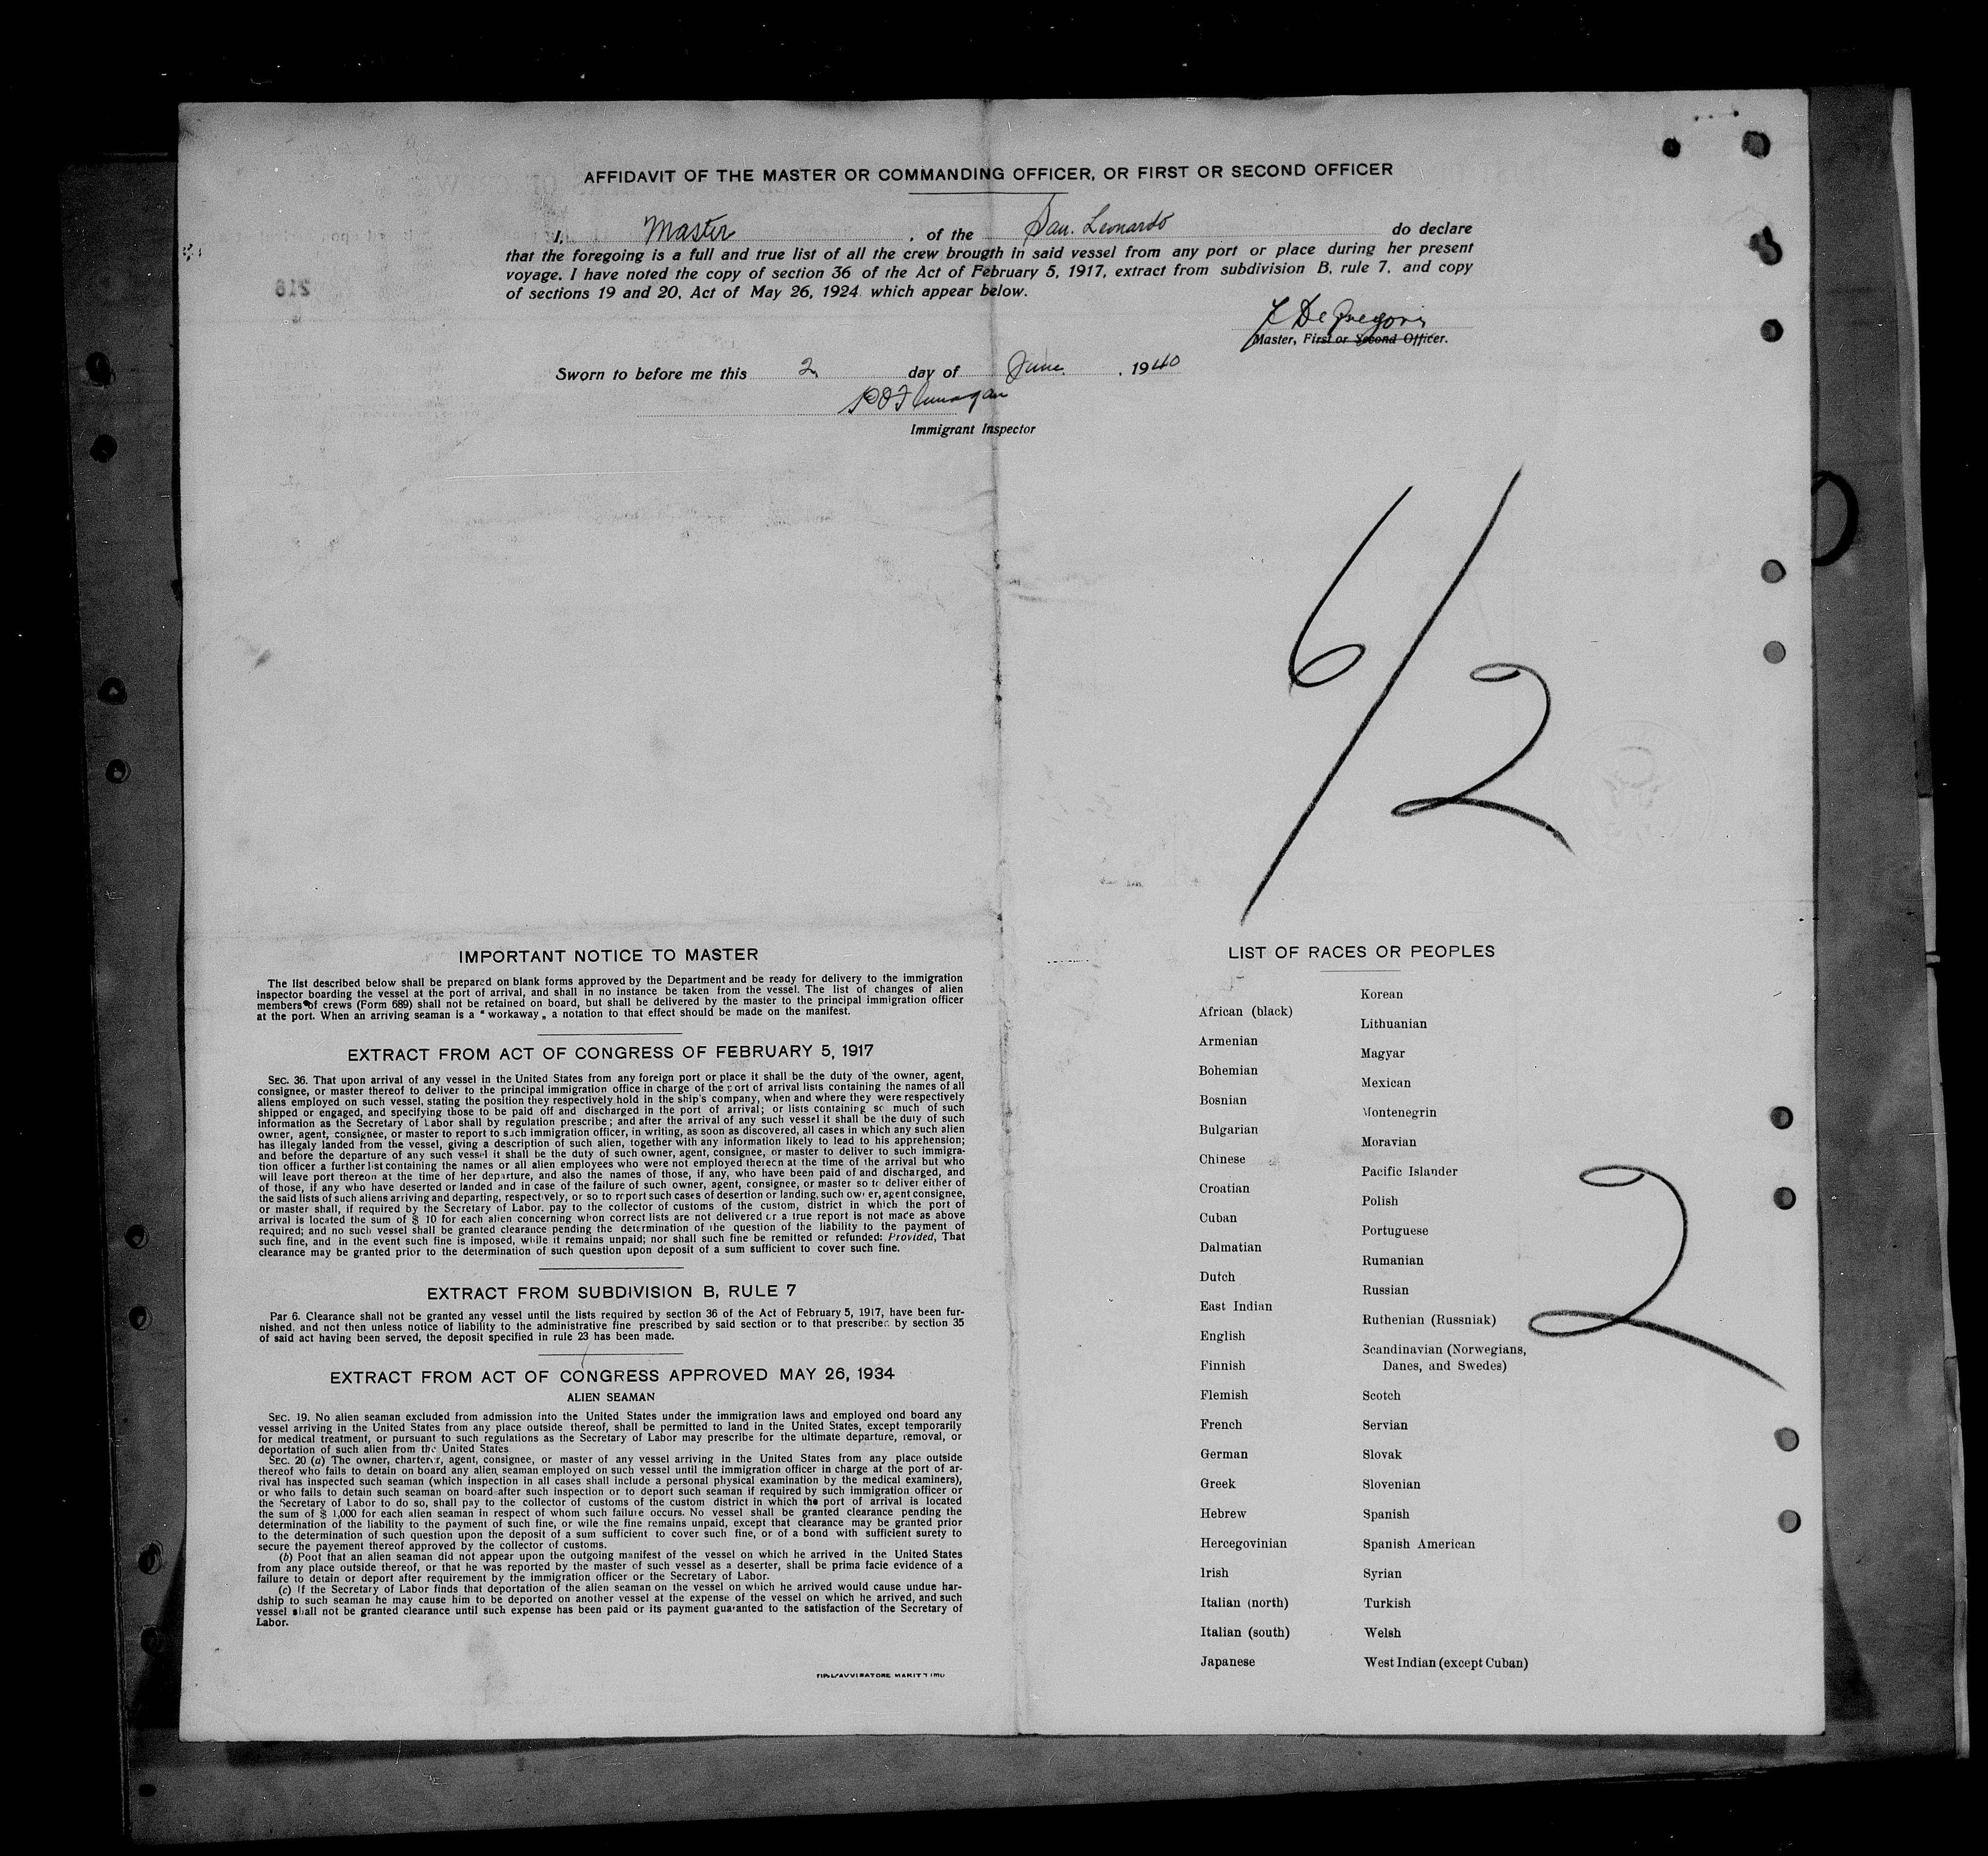 AFFIDAVIT OF THE MASTER OR COMMANDING OFFICER, OR FIRST OR SECOND OFFICER
I, Master, of the San. Leonardo do declare
that the foregoing is a full and true list of all the crew brougth in said vessel from any port or place during her present
voyage. I have noted the copy of section 36 of the Act of February 5, 1917, extract from subdivision B, rule 7, and copy
of sections 19 and 20, Act of May 26, 1924 which appear below.
De Gregori
Master, First or Second Officer.
Sworn to before me this 2 day of June, 1940
Flannagan
Immigrant Inspector
218
6/2
IMPORTANT NOTICE TO MASTER
The list described below shall be prepared on blank forms approved by the Department and be ready for delivery to the immigration
inspector boarding the vessel at the port of arrival, and shall in no instance be taken from the vessel. The list of changes of alien
members of crews (Form 689) shall not be retained on board, but shall be delivered by the master to the principal immigration officer
at the port. When an arriving seaman is a “ workaway „ a notation to that effect should be made on the manifest.
EXTRACT FROM ACT OF CONGRESS OF FEBRUARY 5, 1917
SEC. 36. That upon arrival of any vessel in the United States from any foreign port or place it shall be the duty of the owner, agent,
consignee, or master thereof to deliver to the principal immigration office in charge of the port of arrival lists containing the names of all
aliens employed on such vessel, stating the position they respectively hold in the ship's company, when and where they were respectively
shipped or engaged, and specifying those to be paid off and discharged in the port of arrival; or lists containing so much of such
information as the Secretary of Labor shall by regulation prescribe; and after the arrival of any such vessel it shall be the duty of such
owner, agent, consignee, or master to report to such immigration officer, in writing, as soon as discovered, all cases in which any such alien
has illegaly landed from the vessel, giving a description of such alien, together with any information likely to lead to his apprehension;
and before the departure of any such vessel it shall be the duty of such owner, agent, consignee, or master to deliver to such immigra-
tion officer a further list containing the names or all alien employees who were not employed thereon at the time of the arrival but who
will leave port thereon at the time of her departure, and also the names of those, if any, who have been paid of and discharged, and
of those, if any who have deserted or landed and in case of the failure of such owner, agent, consignee, or master so to deliver either of
the said lists of such aliens arriving and departing, respectively, or so to report such cases of desertion or landing, such owner, agent consignee,
or master shall, if required by the Secretary of Labor. pay to the collector of customs of the custom, district in which the port of
arrival is located the sum of $ 10 for each alien concerning whon correct lists are not delivered or a true report is not made as above
required; and no such vessel shall be granted clearance pending the determination of the question of the liability to the payment of
such fine, and in the event such fine is imposed, while it remains unpaid; nor shall such fine be remitted or refunded: Provided, That
clearance may be granted prior to the determination of such question upon deposit of a sum sufficient to cover such fine.
EXTRACT FROM SUBDIVISION B, RULE 7
Par 6. Clearance shall not be granted any vessel until the lists required by section 36 of the Act of February 5, 1917, have been fur-
nished, and not then unless notice of liability to the administrative fine prescribed by said section or to that prescriber by section 35
of said act having been served, the deposit specified in rule 23 has been made.
EXTRACT FROM ACT OF CONGRESS APPROVED MAY 26, 1934
ALIEN SEAMAN
SEC. 19. No alien seaman excluded from admission into the United States under the immigration laws and employed ond board any
vessel arriving in the United States from any place outside thereof, shall be permitted to land in the United States, except temporarily
for medical treatment, or pursuant to such regulations as the Secretary of Labor may prescribe for the ultimate departure, removal, or
deportation of such alien from the United States
SEC. 20 (a) The owner, charterer, agent, consignee, or master of any vessel arriving in the United States from any place outside
thereof who fails to detain on board any alien seaman employed on such vessel until the immigration officer in charge at the port of ar-
rival has inspected such seaman (which inspection in all cases shall include a personal physical examination by the medical examiners),
or who fails to detain such seaman on board after such inspection or to deport such seaman if required by such immigration officer or
the Secretary of Labor to do so, shall pay to the collector of customs of the custom district in which the port of arrival is located
the sum of $ 1,000 for each alien seaman in respect of whom such failure occurs. No vessel shall be granted clearance pending the
determination of the liability to the payment of such fine, or wile the fine remains unpaid, except that clearance may be granted prior
to the determination of such question upon the deposit of a sum sufficient to cover such fine, or of a bond with sufficient surety to
secure the payement thereof approved by the collector of customs.
(b) Poot that an alien seaman did not appear upon the outgoing manifest of the vessel on which he arrived in the United States
from any place outside thereof, or that he was reported by the master of such vessel as a deserter, shall be prima facie evidence of a
failure to detain or deport after requirement by the immigration officer or the Secretary of Labor.
(c) If the Secretary of Labor finds that deportation of the alien seaman on the vessel on which he arrived would cause undue har-
dship to such seaman he may cause him to be deported on another vessel at the expense of the vessel on which he arrived, and such
vessel shall not be granted clearance until such expense has been paid or its payment guaranted to the satisfaction of the Secretary of
Labor.
TIP. L'AVVISATORE MARITTIMO
LIST OF RACES OR PEOPLES
African (black)
Armenian
Bohemian
Bosnian
Bulgarian
Chinese
Croatian
Cuban
Dalmatian
Dutch
East Indian
English
Finnish
Flemish
French
German
Greek
Hebrew
Hercegovinian
Irish
Italian (north)
Italian (south)
Japanese
Korean
Lithuanian
Magyar
Mexican
Montenegrin
Moravian
Pacific Islander
Polish
Portuguese
Rumanian
Russian
Ruthenian (Russniak)
Scandinavian (Norwegians,
Danes, and Swedes)
Scotch
Servian
Slovak
Slovenian
Spanish
Spanish American
Syrian
Turkish
Welsh
West Indian (except Cuban)
2